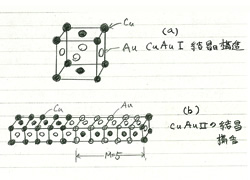 Cu
(a)
Au
CuAuⅠ 結晶構造
Cu
Au
(b)
CuAuⅡの結晶
構造
M=5